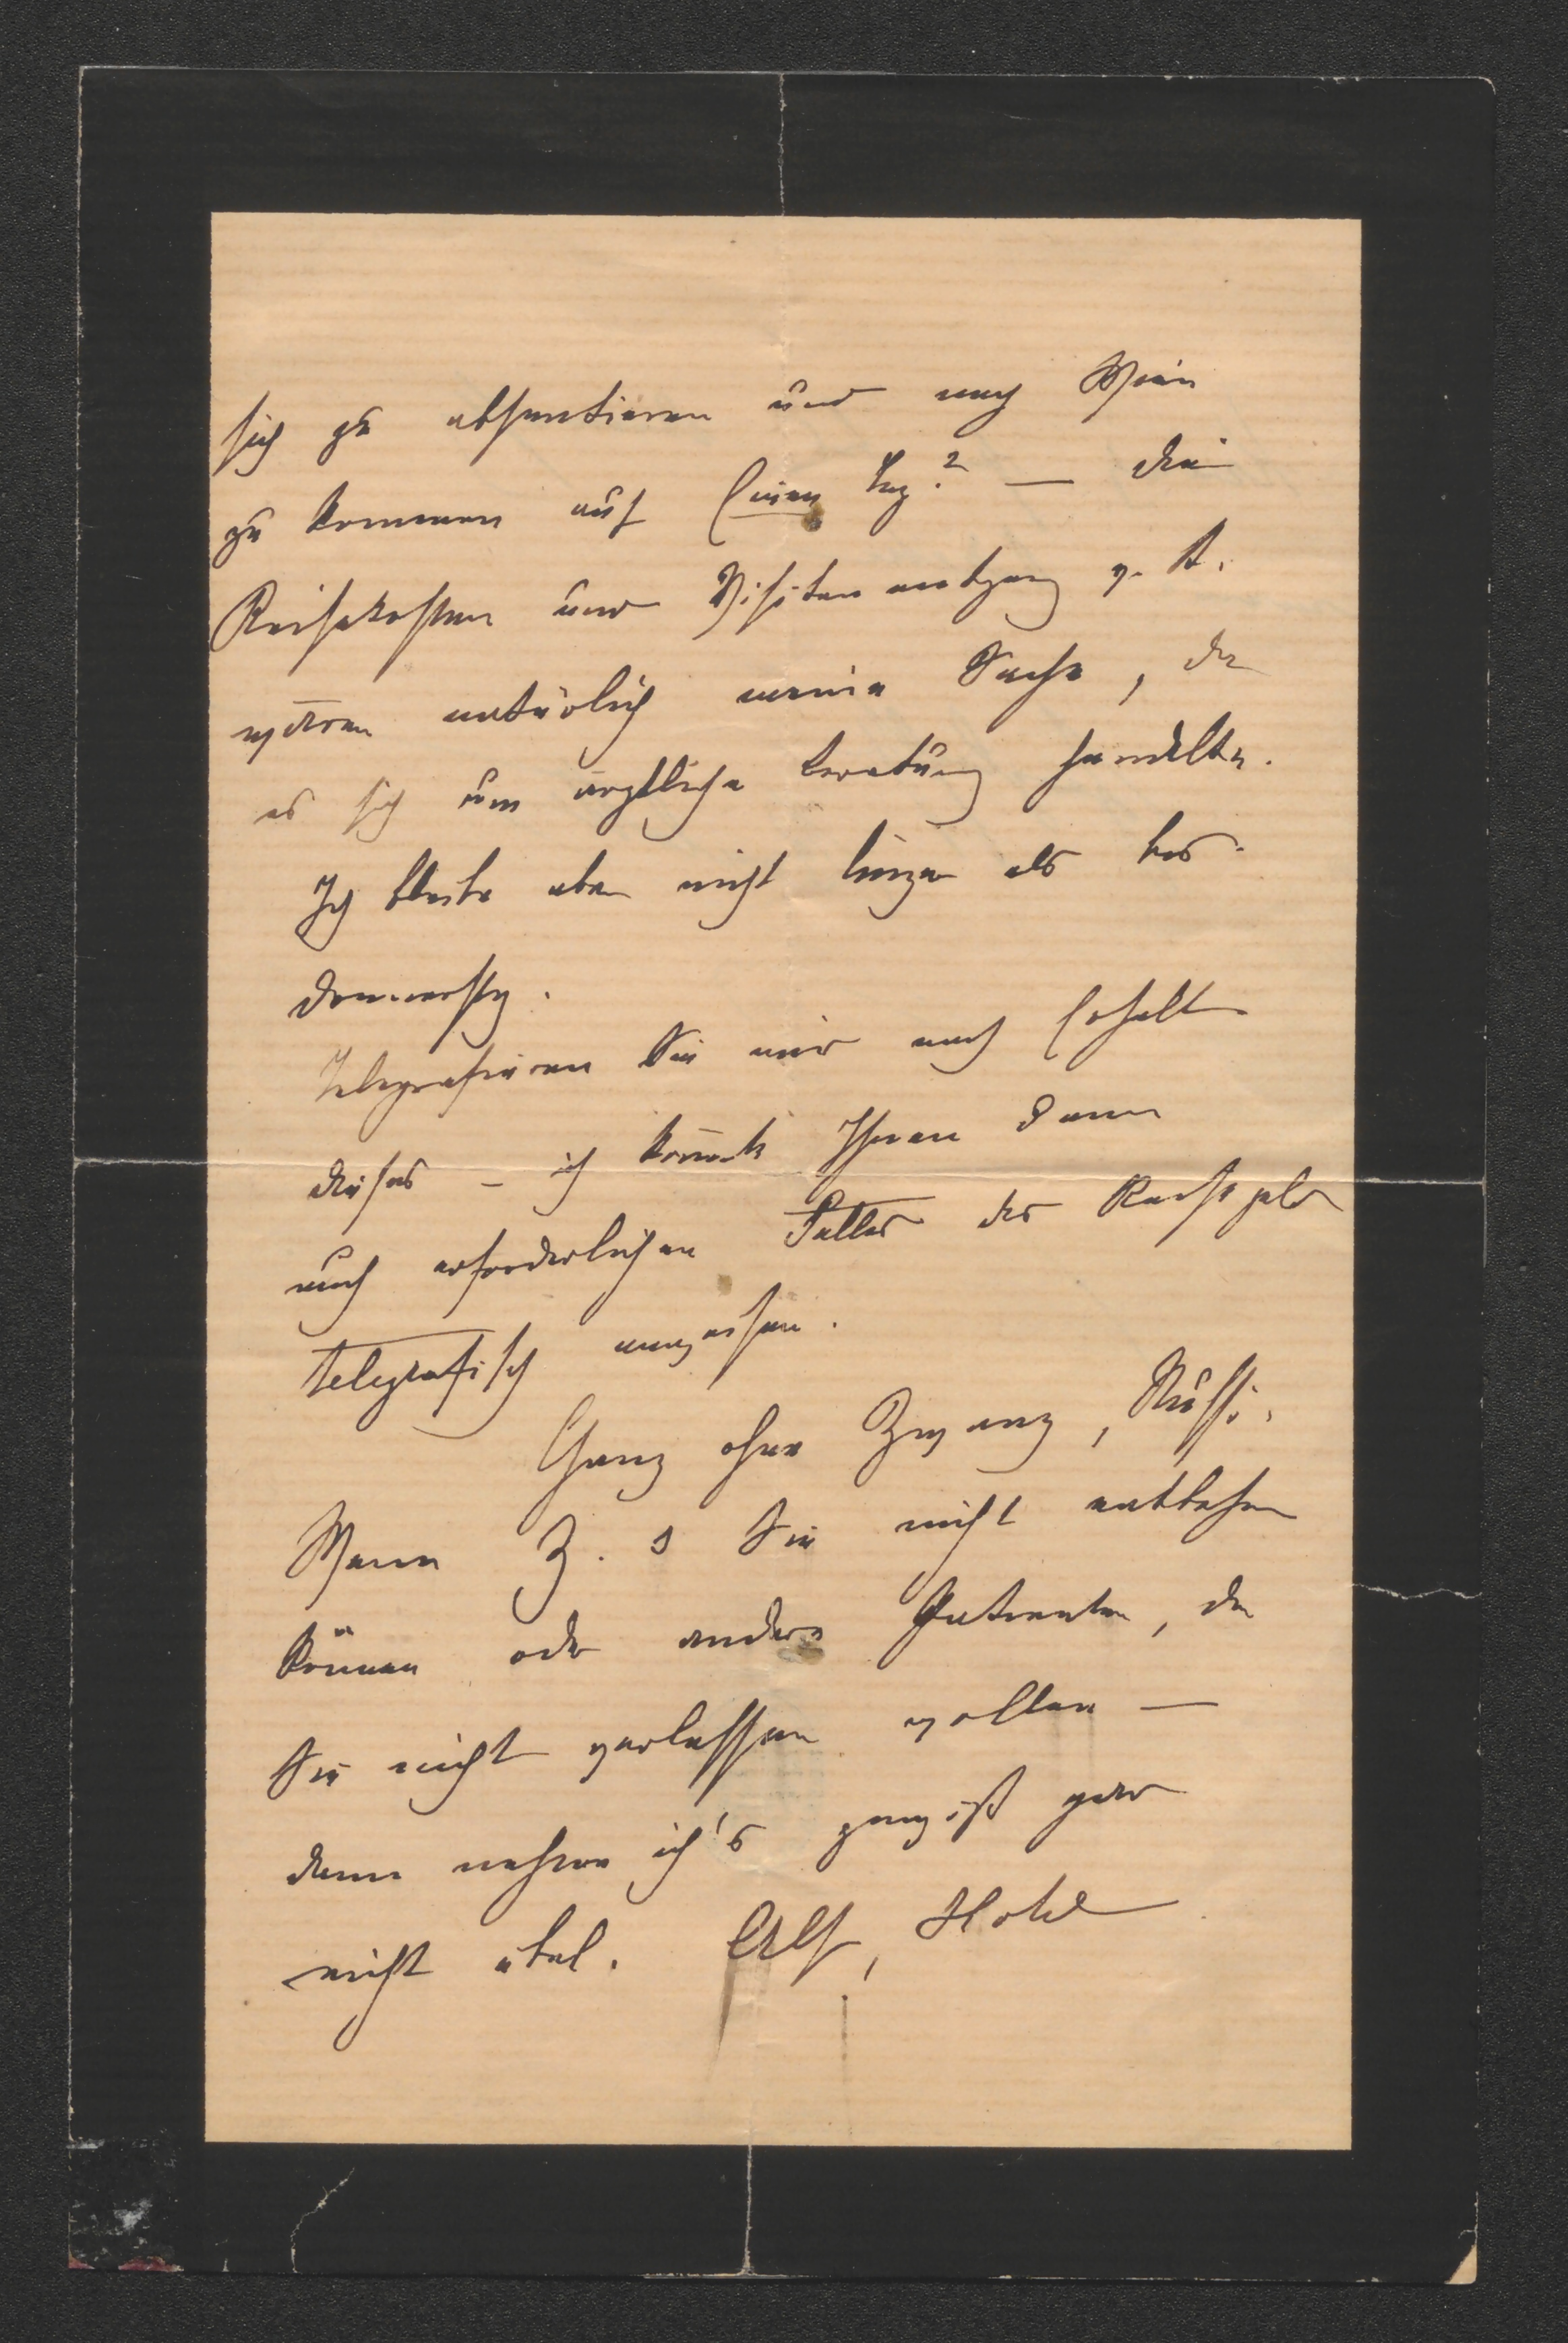 sich zu absentieren und nach Wien
zu kommen auf Einen Tag? — die
Reisekosten und Visitenentgang p. A.
wären natürlich meine Sache, da
es sich um ärztliche Beratung handelte.
Ich bleibe aber nicht länger als bis
Donnerstag.
Telegrafieren Sie mir nach Erhalt
dieses – ich könnte Ihnen dann
auch erforderlichen Falles das Reisegeld
telegrafisch anweisen.
Ganz ohne Zwang,
Wenn Z. B Sie nicht entbehren
können oder andere Patienten, die
Sie nicht verlassen wollen —
dann nehme ich's gewiß gar
nicht übel. Hotel